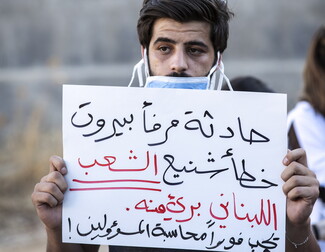 حادثة مرفأ بيروت
خطأ شنيع الشعب
اللبناني بريء منه.
يجب فوراً محاسبة المسؤولين!